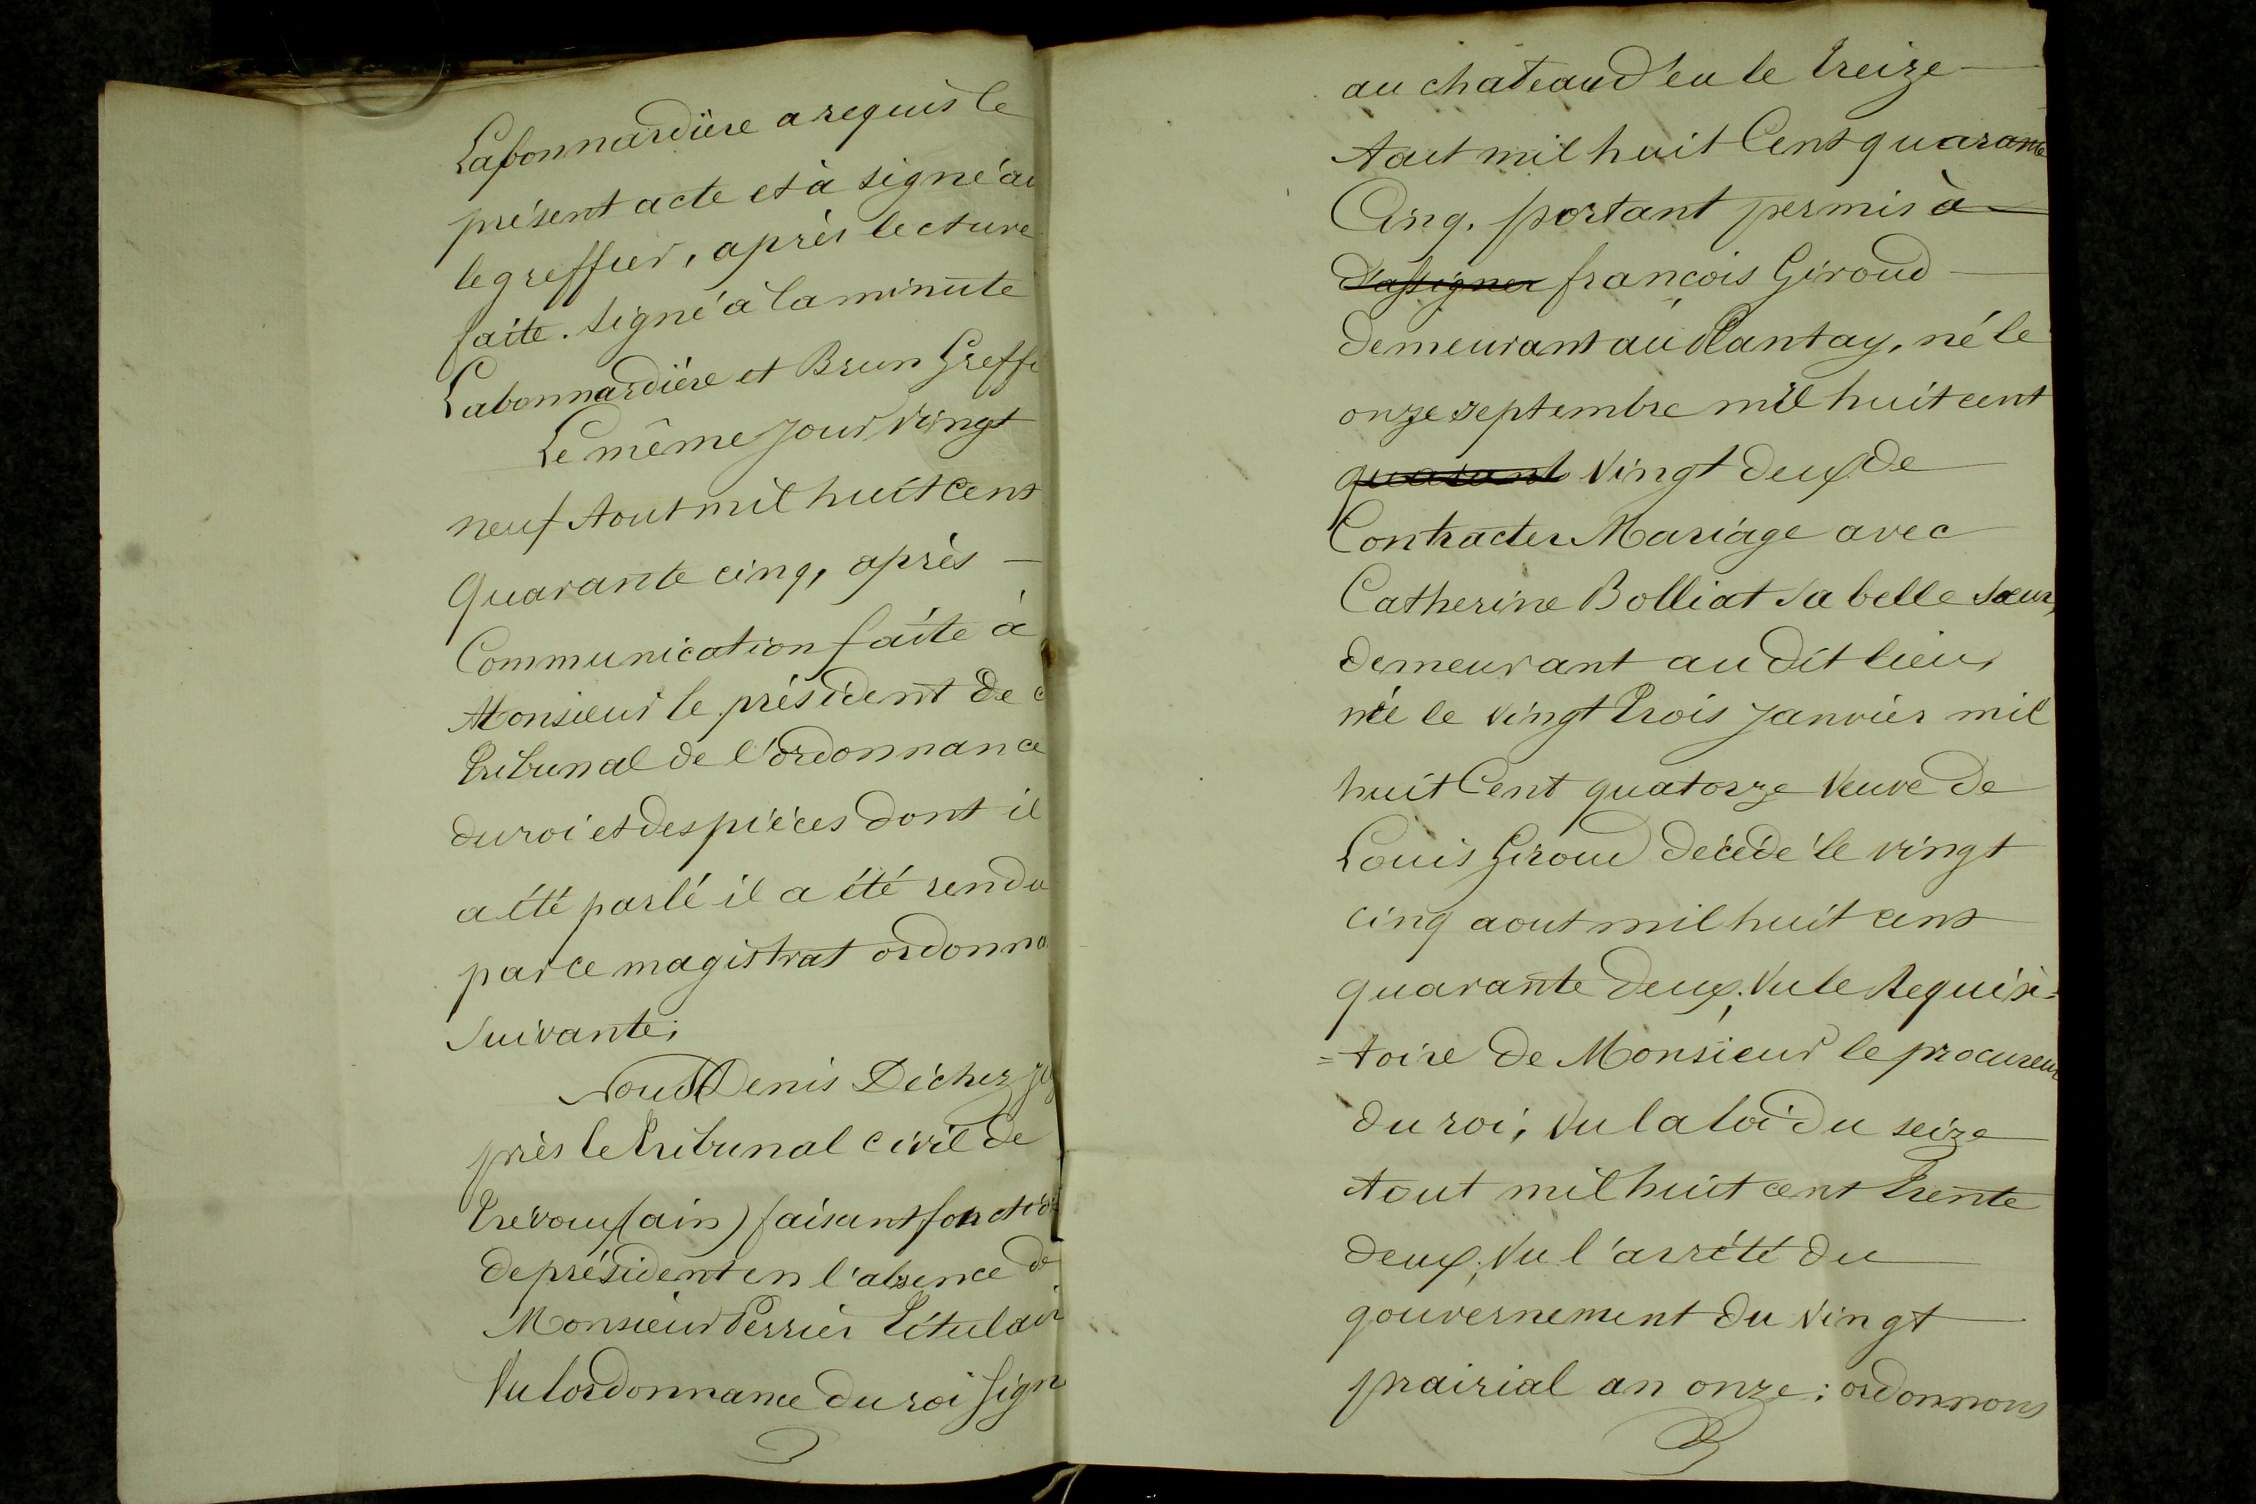 Labonnardière a requis le
présent acte et à signé au
le greffier, après lecture
faite. Signé à la minute
Labonnardière et Brun Greffi
Le même jour Vingt
neuf Aout mil huit Cent
Quarante cinq, après
Communication faite à
Monsieur le président de c
Tribunal de l'ordonnance
du roi et des pièces dont il
a été parlé il a été rendu
par ce magistrat ordonna
Suivante;
Nous Denis Déchez
près le tribunal civil de
Trevoux (ain) faisant fonction
de président en l'absence de
Monsieur Perrier Titulair
Vu lordonnance du roi Sign
au chateau d'eu le treize
Aout mil huit Cent quarante
Cinq. portant permis à
d'assigner françois Giroud
demeurant au Plantay, né le
onze septembre mil huit cent
quarant Vingt deux de
Contracter Mariage avec
Catherine Bolliat sa belle soeur,
demeurant au dit lieu,
née le vingt trois janvier mil
huit Cent quatorze Veuve de
Louis Giroud décédé le vingt
cinq aout mil huit cent
quarante deux; Vu le Requisi=
=toire de Monsieur le procureur
du roi; Vu la loi du seize
Aout mil huit cent trente
deux; Vu l'arrêté du
gouvernement du Vingt
prairial an onze; ordonnons